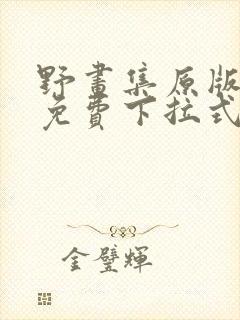 野畫集原版
免費下拉式
金璧輝